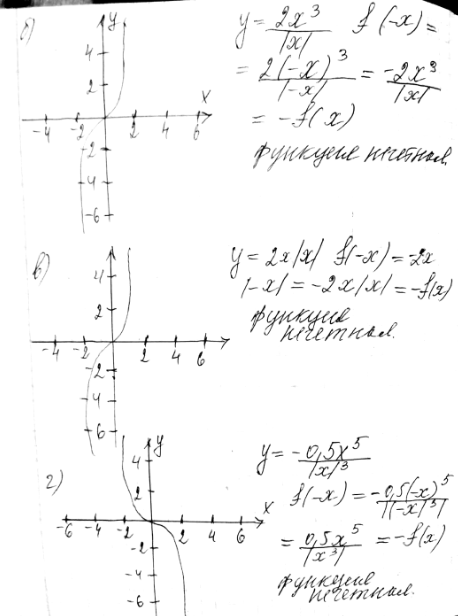 б)
y
4
2
-4 -2 2 4 6 x
-2
-4
-6
y = 2x³/|x| f(-x) =
= 2(-x)³/|-x| = -2x³/|x|
= -f(x)
функция нечетная.
в)
4
2
-4 -2 2 4 6
-2
-4
-6
y = 2x|x| f(-x) = -2x
|-x| = -2x|x| = -f(x)
функция
нечетная.
г)
y
4
2
-6 -4 -2 2 4 6 x
-2
-4
-6
y = -0,5x⁵/|x|³
f(-x) = -0,5(-x)⁵/|(-x)³|
= 0,5x⁵/|x³| = -f(x)
функция
нечетная.